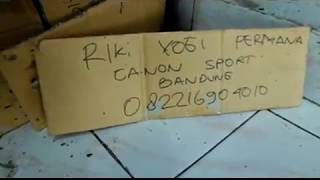 Riki YOGI PERMANA
CANON SPORT
BANDUNG
082216904010